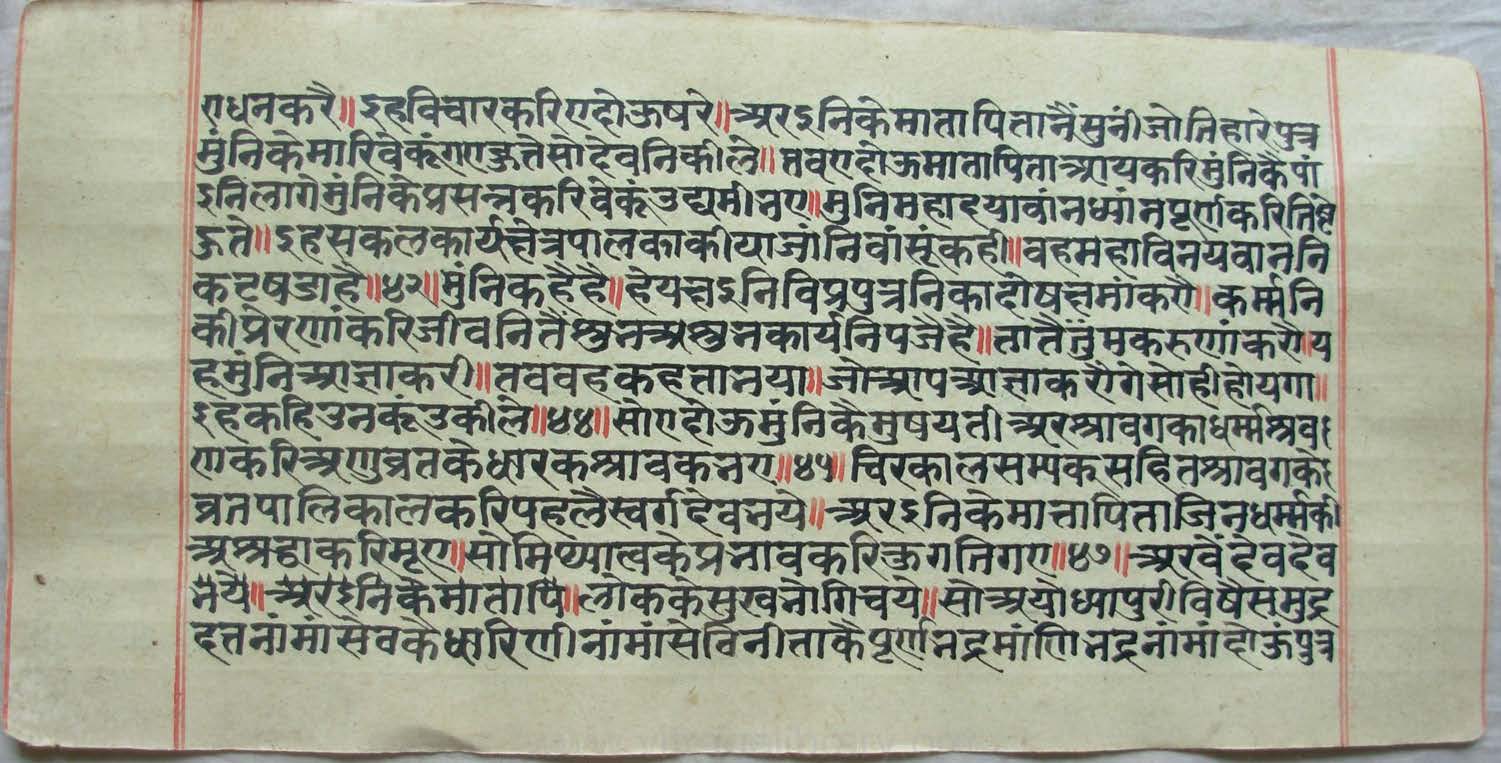 एधनकरै॥इहविचारकरिएदोऊषरे॥अरइनिकेमातापितानैंसुनींजोतिहारेपुत्र
मुंनिकेमारिवेकूंगएऊतेसोदेवनिकीले॥तवएदोऊमातापिताआयकरिमुंनिकैपां
इनिलागेमुंनिकेप्रसन्नकरिवेकूंउद्यमीनए॥मुनिमहादयावांनध्यांनपूर्णकरितिष्टे
ऊते॥इहसकलकार्यक्षेत्रपालकाकीयाजांनिवांसूंकही॥वहमहाविनयवाननि
कटषडाहै॥४२॥मुंनिकहैहै॥हेयक्षइनिविप्रपुत्रनिकादोषक्षमांकरौ॥कर्म्मनि
कीप्रेरणांकरिजीवनितैंशुनअशुनकार्यनिपजैहै॥तातैंतुंमकरुणांकरौ॥य
हमुंनिआज्ञाकरी॥तववहकहतानया॥जोआपआज्ञाकरौगेसोहीहोयगा॥
इहकहिउनकूंउकीले॥४४॥सोएदोऊमुंनिकैमुषयतीअरश्रावगकाधर्म्मश्रव
णकरिअणुव्रतकेधारकश्रावकनए॥४५॥चिरकालसम्यकसहितश्रावगके
व्रतपालिकालकरिपहलैस्वर्गदेवनये॥अरइनिकेमातापिताजिनधर्म्मकी
अश्रद्धाकरिमृए॥सोमिथ्यात्वकेप्रनावकरिकुगतिगए॥४७॥अरवेंदेवदेव
नयै॥अरइनिकैमातापि॥लोककेसुखनोगिचये॥सोअयोध्यापुरीविषैसमुद्र
दत्तनांमांसेवकैधारिणीनांमांसेविनीताकैपूर्णनद्रमांणिनद्रनांमांदोऊंपुत्र